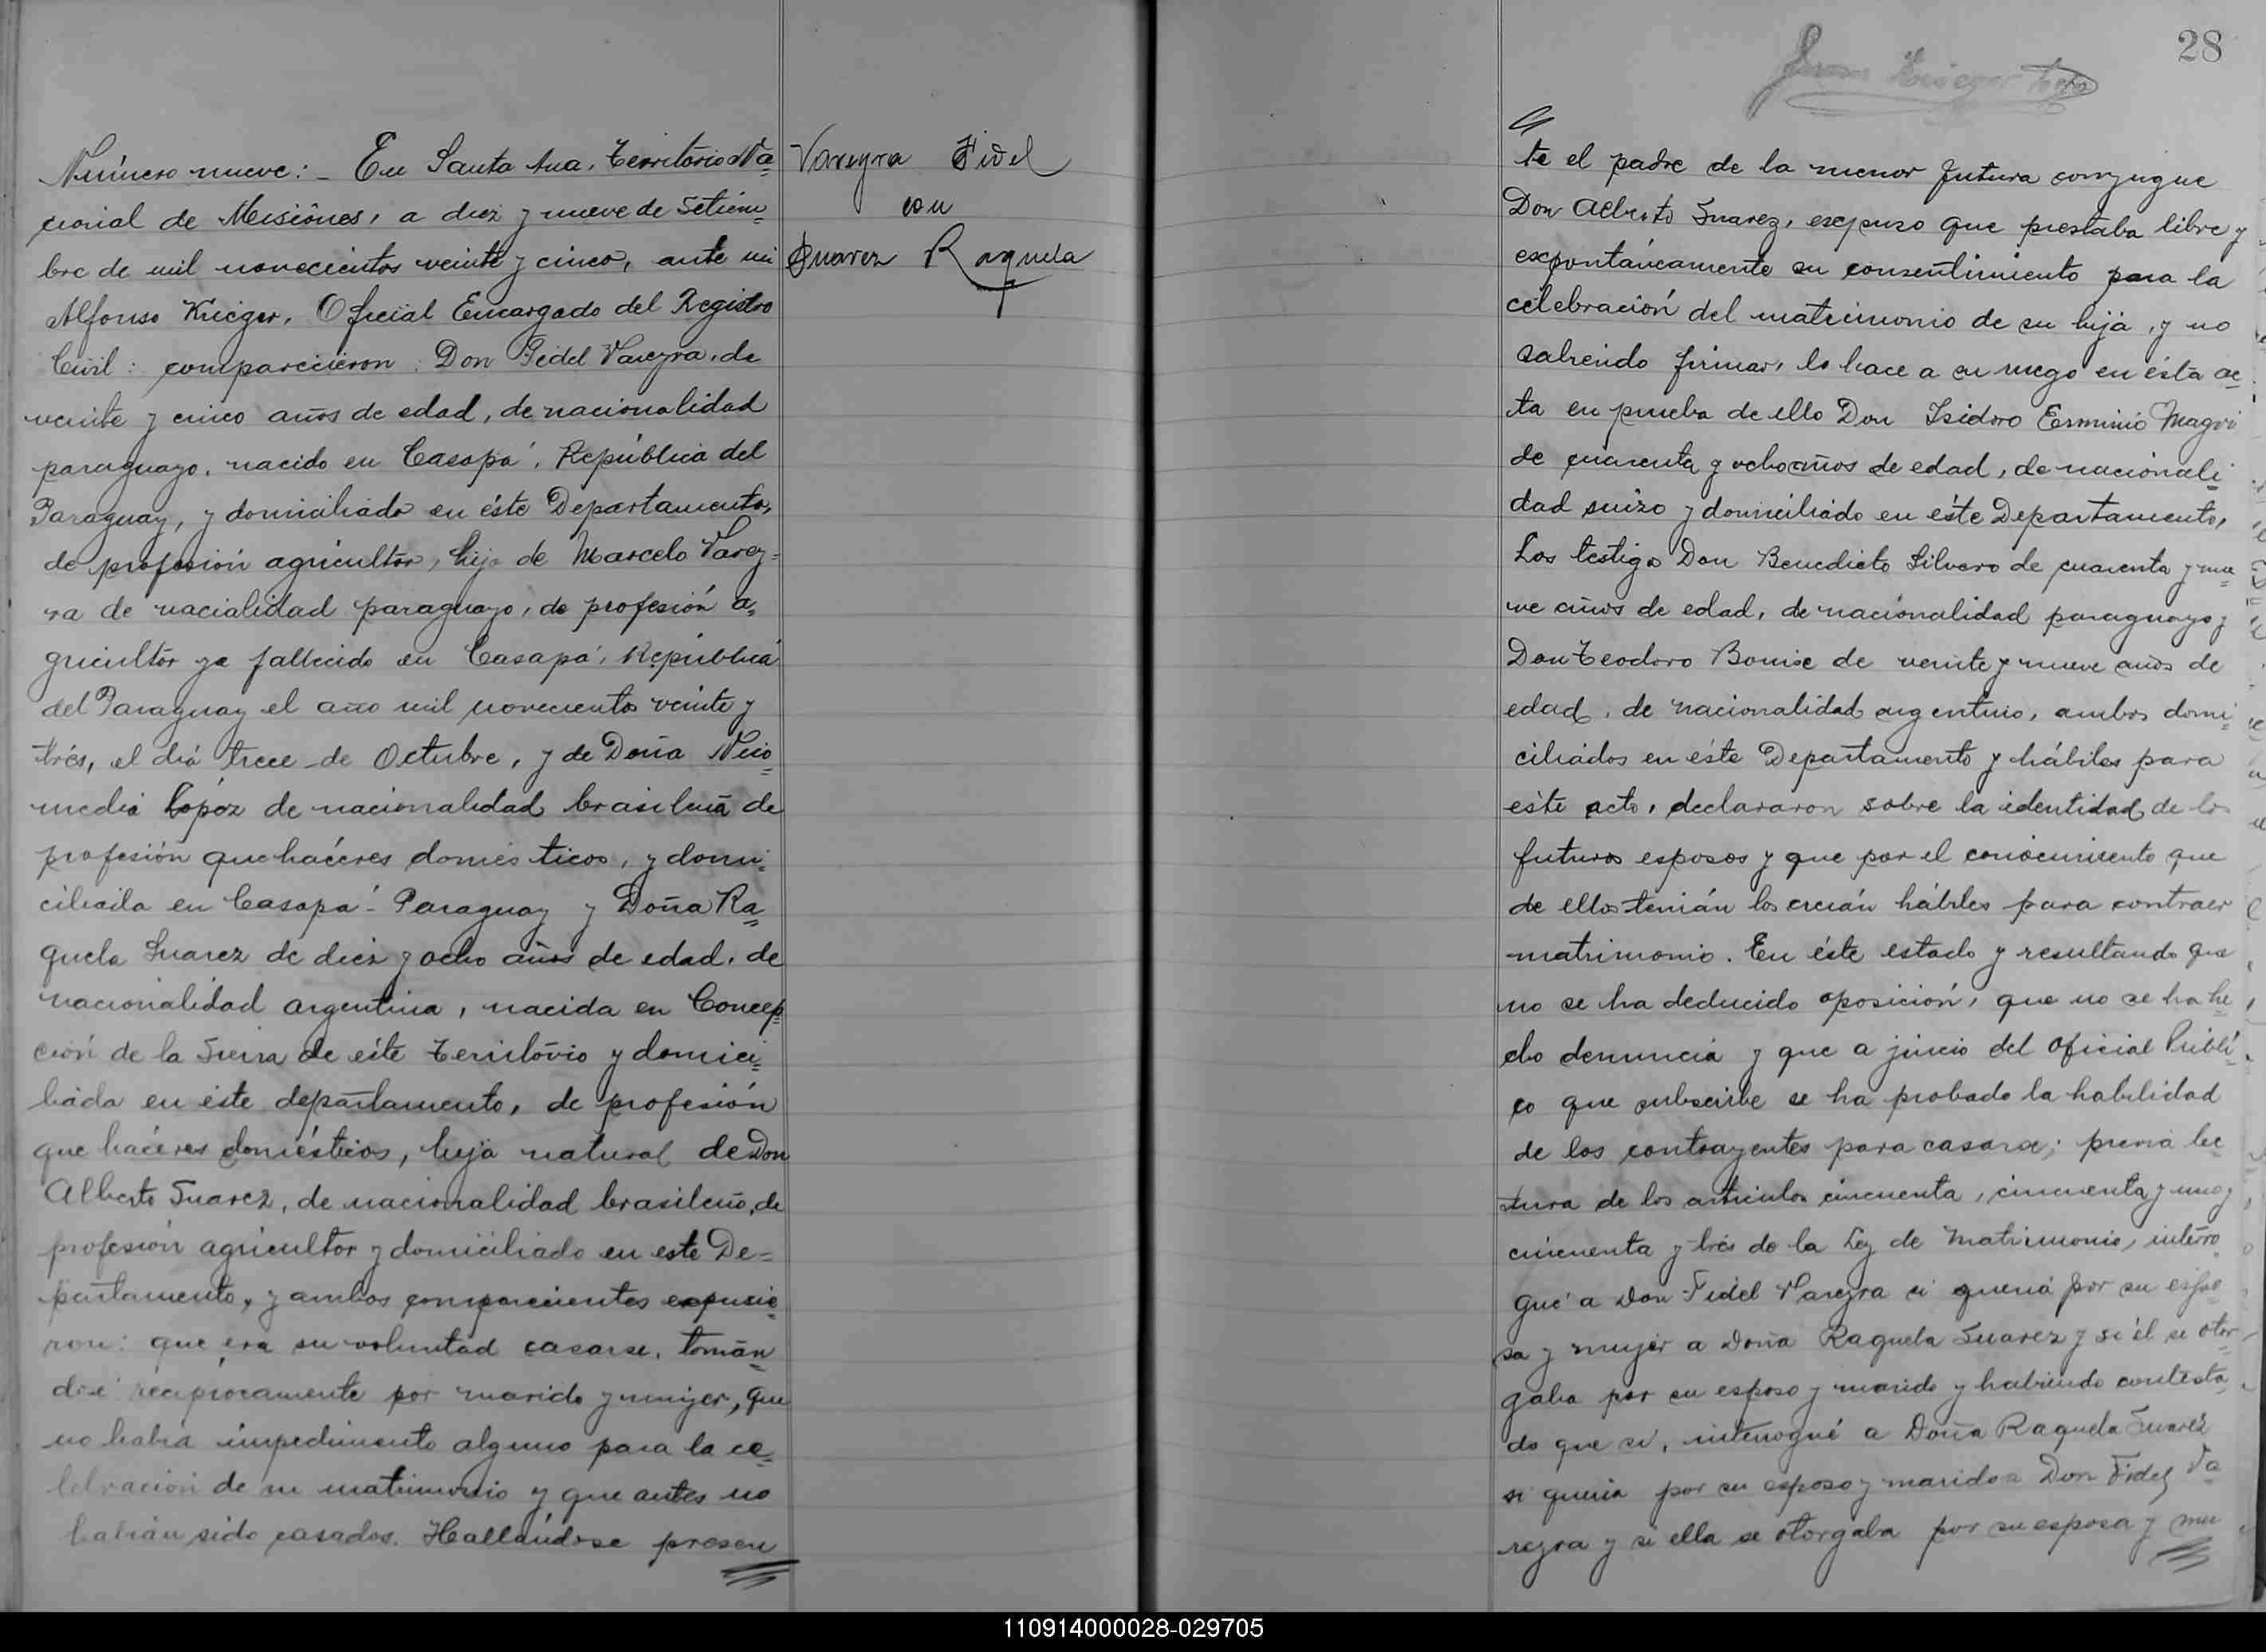 Número nueve: _ En Santa Ana, Territorio Na=
cional de Misiónes, a diez y nueve de Setiem=
bre de mil novecientos veinte y cinco, ante mi
Alfonso Krieger, Oficial Encargado del Registro
Civil: comparecieron: Don Fidel Vareyra, de
veinte y cinco años de edad, de nacionalidad
paraguayo, nacido en Casapá, República del
Paraguay, y domiciliado en éste Departamento,
de profesión agricultor, hijo de Marcelo Varey=
ra de nacialidad paraguayo, de profesión a=
gricultor ya fallecido en Casapá, República
del Paraguay el año mil novecientos veinte y
trés, el diá trece de Octubre, y de Doña Nico=
media López de nacionalidad brasileña de
profesión quehacéres domésticos, y domi=
ciliada en Casapá - Paraguay y Doña Ra=
quela Suarez de diez y ocho años de edad, de
nacionalidad argentina, nacida en Concep=
ción de la Sierra de éste Território y domici=
liada en éste departamento, de profesión
que hacéres domésticos, hija natural de Don
Alberto Suarez, de nacionalidad brasileño, de
profesión agricultor y domiciliado en este De=
partamento, y ambos comparecientes expusie=
ron: que era su voluntad casarse, tomán=
dose reciprocamente por marido y mujer, que
no habia impedimento alguno para la ce=
lebración de su matrimonio y que antes no
habián sido casados. Hallándose presen
Vareyra Fidel
con
Suarez Raquela
28
Krieger
te el padre de la menor futura conyugue
Don Alberto Suarez, expuso que prestaba libre y
expontáneamente su consentimiento para la
celebración del matrimonio de su hija, y no
sabiendo firmar, lo hace a su ruego en ésta ac=
ta en prueba de ello Don Isidoro Erminio Magri
de cuarenta y ocho años de edad, de nacionali=
dad suizo y domiciliado en éste Departamento,
Los testigos Don Benedicto Silvero de cuarenta y nue=
ve años de edad, de nacionalidad paraguayo y
Don Teodoro Bouise de veinte y nueve años de
edad, de nacionalidad argentino, ambos domi=
ciliados en éste Departamento y hábiles para
éste acto, declararon sobre la identidad de los
futuros esposos y que por el conocimiento que
de ellos tenián los creián hábiles para contraer
matrimonio. En éste estado y resultando que
no se ha deducido oposición, que no se ha he=
cho denuncia y que a juicio del Oficial Públi=
co que subscribe se ha probado la habilidad
de los contrayentes para casarse; previa lec
tura de los articulos cincuenta, cincuenta y uno y
cincuenta y trés de la Ley de Matrimonio, interro=
gué a Don Fidel Vareyra si queria por su espo=
sa y mujer a Doña Raquela Suarez y si él se otor=
gaba por su esposo y marido y habiendo contesta=
do que si, interrogué a Doña Raquela Suarez
si queria por su esposo y marido a Don Fidel Va=
reyra y si ella se otorgaba por su esposa y mu
110914000028-029705